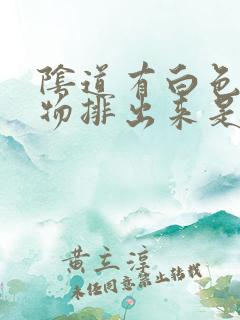 陰道有白色
物排出来是
黄立淳
未经同意禁止转载